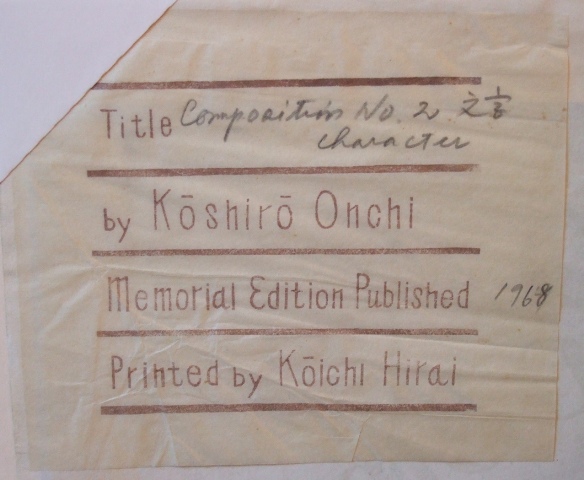 Title Composition No. 2
character
by Kōshirō Onchi
Memorial Edition Published 1968
Printed by Kōichi Hirai